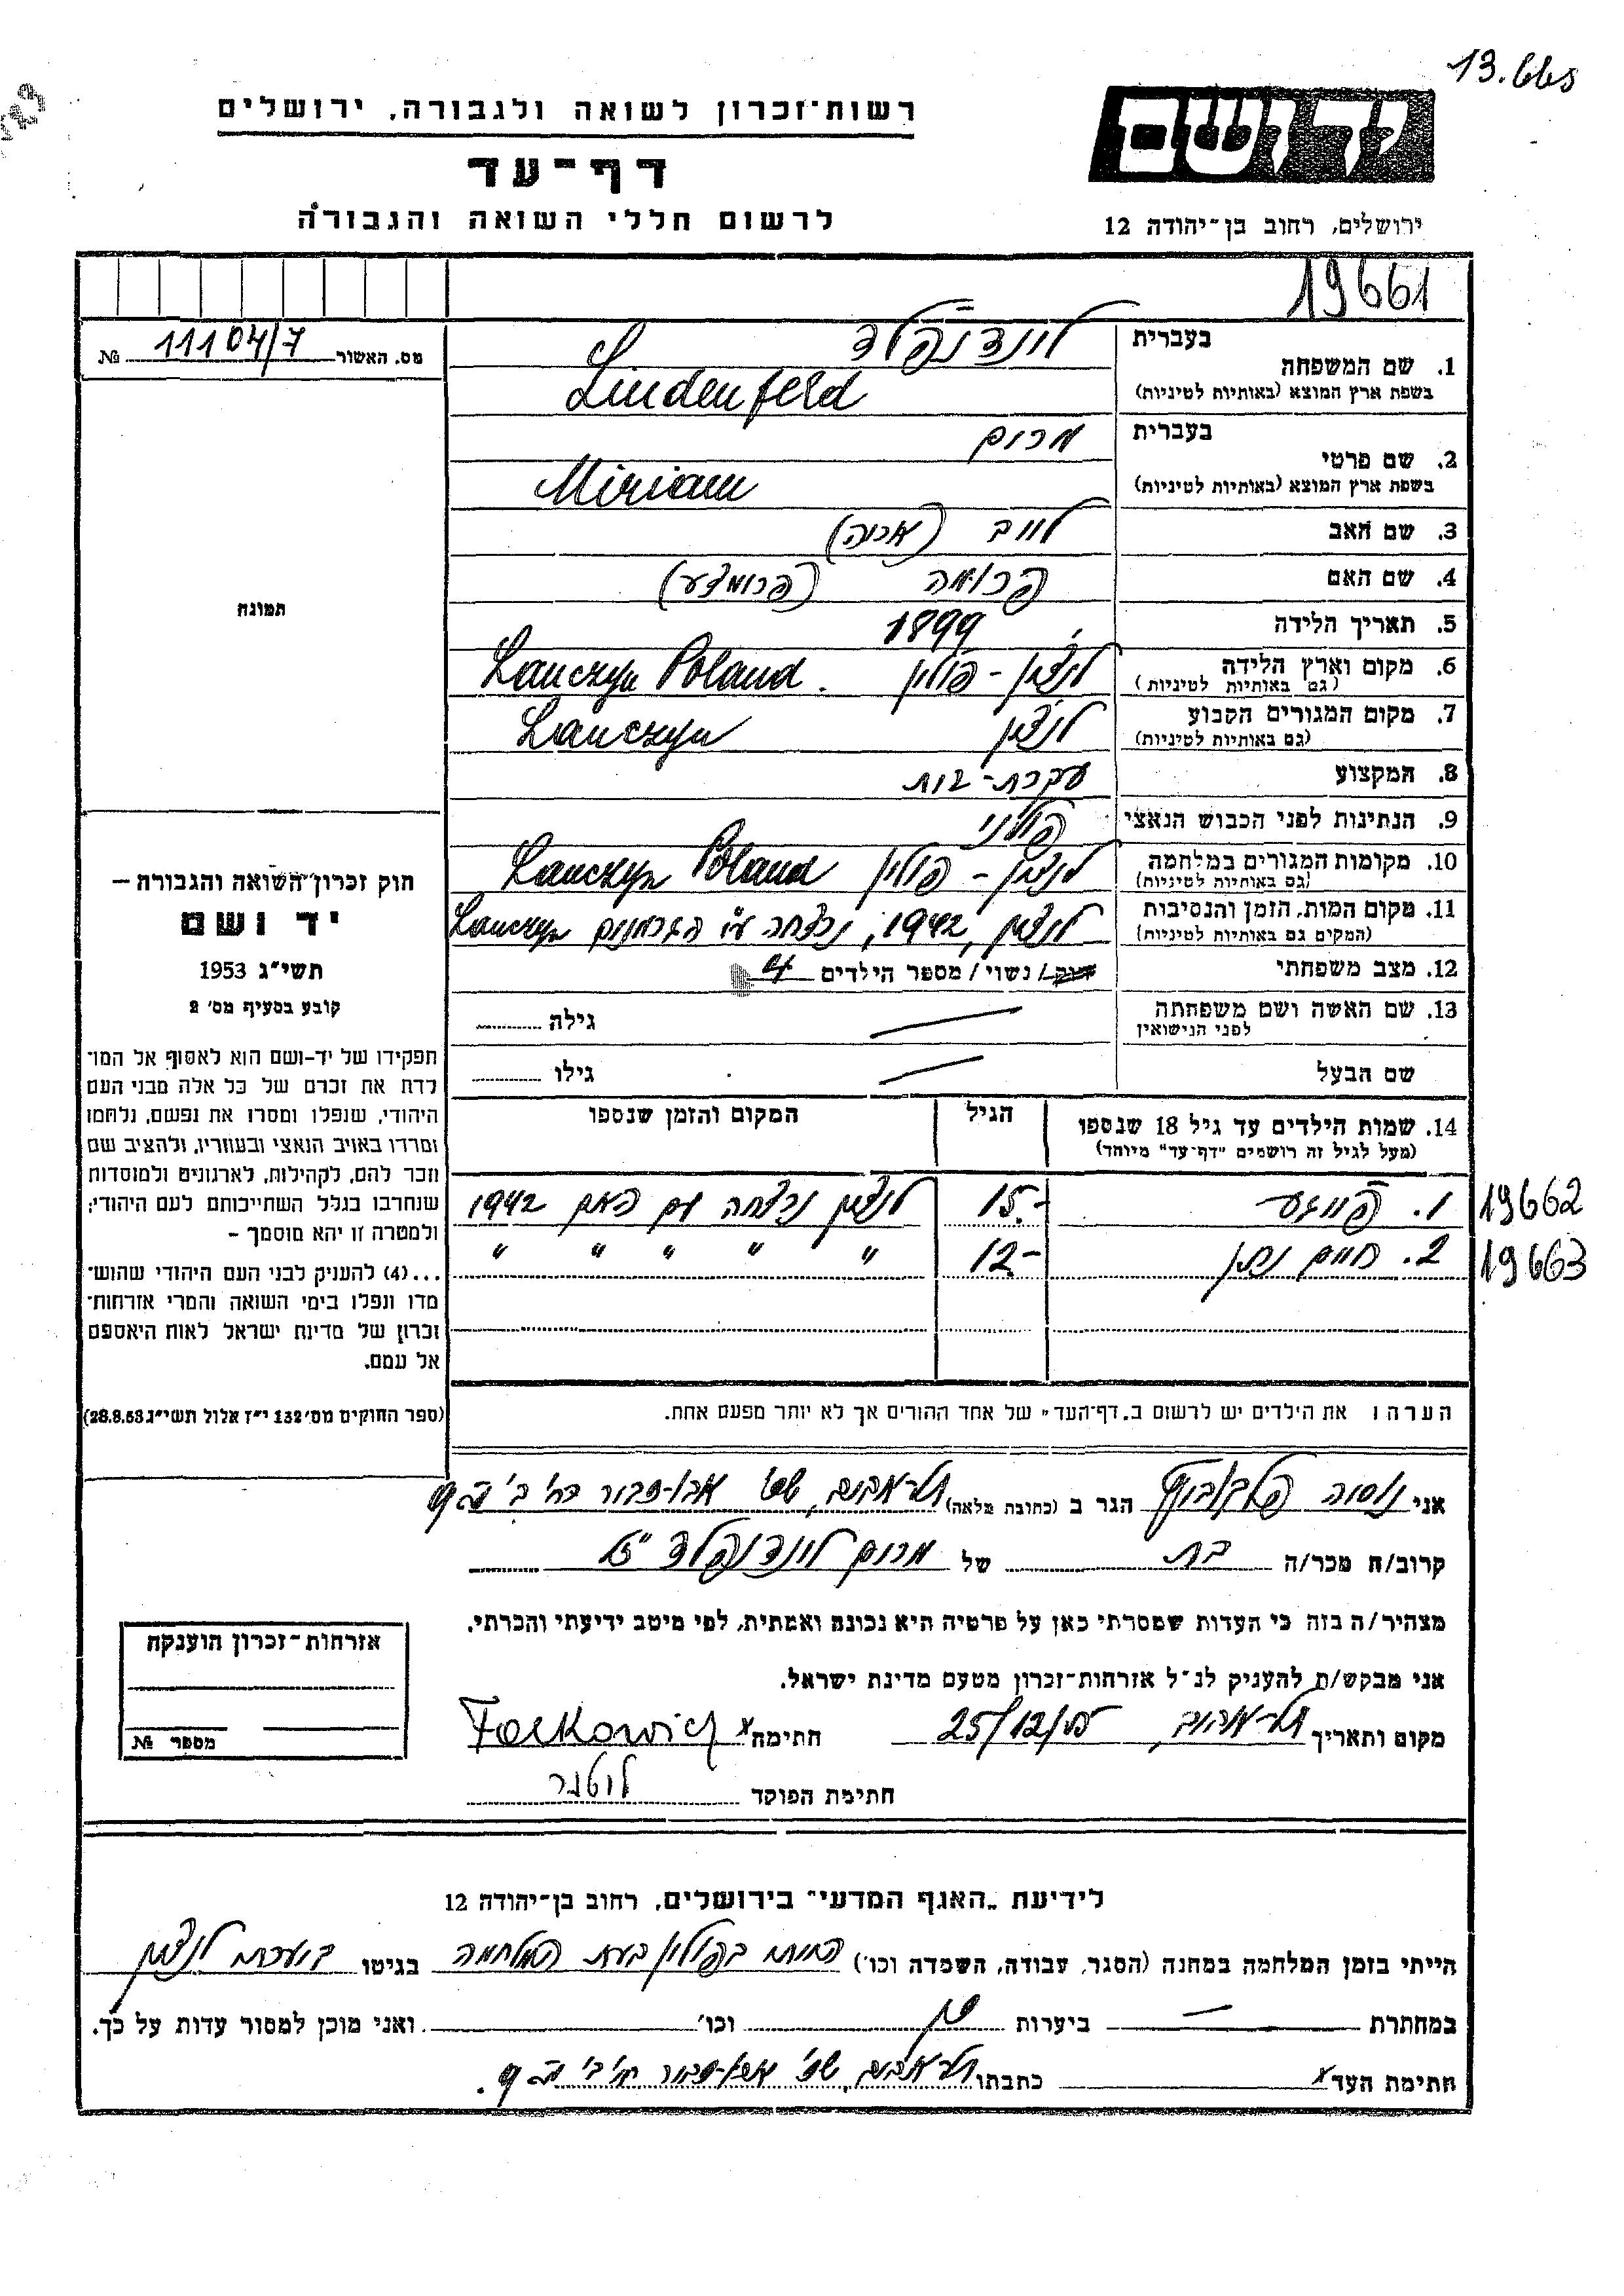 13.665
רשות־זכרון לשואה ולגבורה, ירושלים
יד ושם
דף־עד
לרשום חללי השואה והגבורה
ירושלים, רחוב בן־יהודה 12
19661
מס. האשור 11104/7 №
1. שם המשפחה
בעברית לינדנפלד
בשפת ארץ המוצא (באותיות לטיניות) Lindenfeld
2. שם פרטי
בעברית מרים
בשפת ארץ המוצא (באותיות לטיניות) Miriam
3. שם האב לייב
4. שם האם פרומה
5. תאריך הלידה 1899
6. מקום וארץ הלידה לנצין - פולין Lanczyn Poland.
(גם באותיות לטיניות)
7. מקום המגורים הקבוע לנצין Lanczyn
(גם באותיות לטיניות)
8. המקצוע עקרת-בית
9. הנתינות לפני הכבוש הנאצי פולני
10. מקומות המגורים במלחמה לנצין - פולין Lanczyn Poland
(גם באותיות לטיניות)
11. מקום המות, הזמן והנסיבות לנצין, 1942, נרצחה ע"י הגרמנים Lanczyn
(המקום גם באותיות לטיניות)
12. מצב משפחתי רווק / נשוי / מספר הילדים 4
13. שם האשה ושם משפחתה
לפני הנישואין
גילה
שם הבעל גילו
14. שמות הילדים עד גיל 18 שנספו הגיל המקום והזמן שנספו
(מעל לגיל זה רושמים "דף־עד" מיוחד)
1. פייגע 15.- לנצין נרצחה עם האם 1942 19662
2. חיים נתן 12.- " " " " " 19663
הערה: את הילדים יש לרשום ב„דף־העד" של אחד ההורים אך לא יותר מפעם אחת.
תמונה
חוק זכרון־השואה והגבורה –
יד ושם
תשי״ג 1953
קובע בסעיף מס׳ 2
תפקידו של יד-ושם הוא לאסוף אל המו־
לדת את זכרם של כל אלה מבני העם
היהודי, שנפלו ומסרו את נפשם, נלחמו
ומרדו באויב הנאצי ובעוזריו, ולהציב שם
וזכר להם, לקהילות, לארגונים ולמוסדות
שנחרבו בגלל השתייכותם לעם היהודי;
ולמטרה זו יהא מוסמך –
...(4) להעניק לבני העם היהודי שהוש־
מדו ונפלו בימי השואה והמרי אזרחות־
זכרון של מדינת ישראל לאות היאספם
אל עמם.
(ספר החוקים מס׳ 132 י״ז אלול תשי״ג 28.8.53)
אני הגר ב (כתובת מלאה) תל-אביב,
קרוב/ה מכר/ה בת של מרים לינדנפלד ז"ל
מצהיר/ה בזה כי העדות שמסרתי כאן על פרטיה היא נכונה ואמתית, לפי מיטב ידיעתי והכרתי.
אני מבקש/ת להעניק לנ״ל אזרחות־זכרון מטעם מדינת ישראל.
מקום ותאריך תל-אביב, 25/12/55 חתימה x Falkowich
חתימת הפוקד
אזרחות־זכרון הוענקה
מספר №
לידיעת „האגף המדעי" בירושלים, רחוב בן־יהודה 12
הייתי בזמן המלחמה במחנה (הסגר, עבודה, השמדה וכו׳) הייתי בפולין בעת המלחמה בגיטו
במחתרת — ביערות וכו׳ ואני מוכן למסור עדות על כך.
חתימת העד x כתבתו תל-אביב,